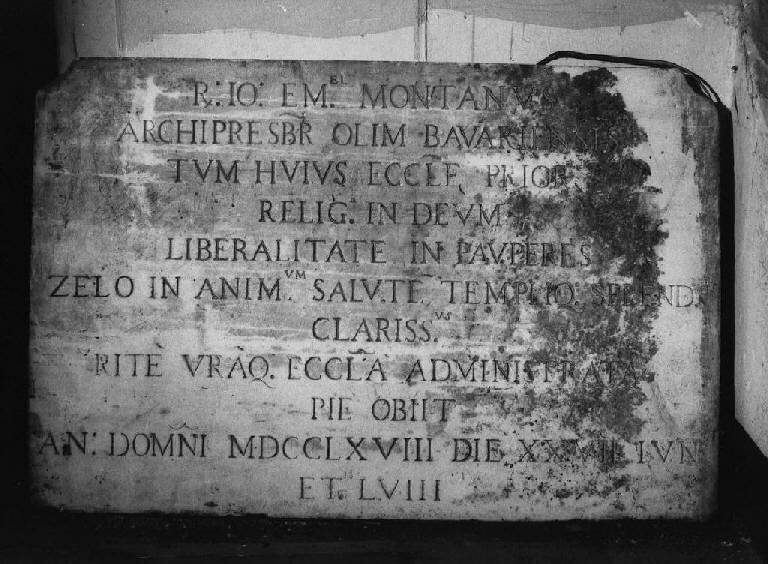 R: IO: EM.EL MONTANVS
ARCHIPRESBR̃ OLIM BAVARIENSIS
TVM HVIVS ECCLE. PRIOR
RELIG. IN DEVM
LIBERALITATE IN PAVPERES
ZELO IN ANIM.VM SALV.TE TEMPLIQ. SPLEND.
CLARISS.VS
RITE VRAQ. ECCLA ADMINISTRATA
PIE OBIIT
AN: DOMÑI MDCCLXVIII DIE IVN
ET. LVIII